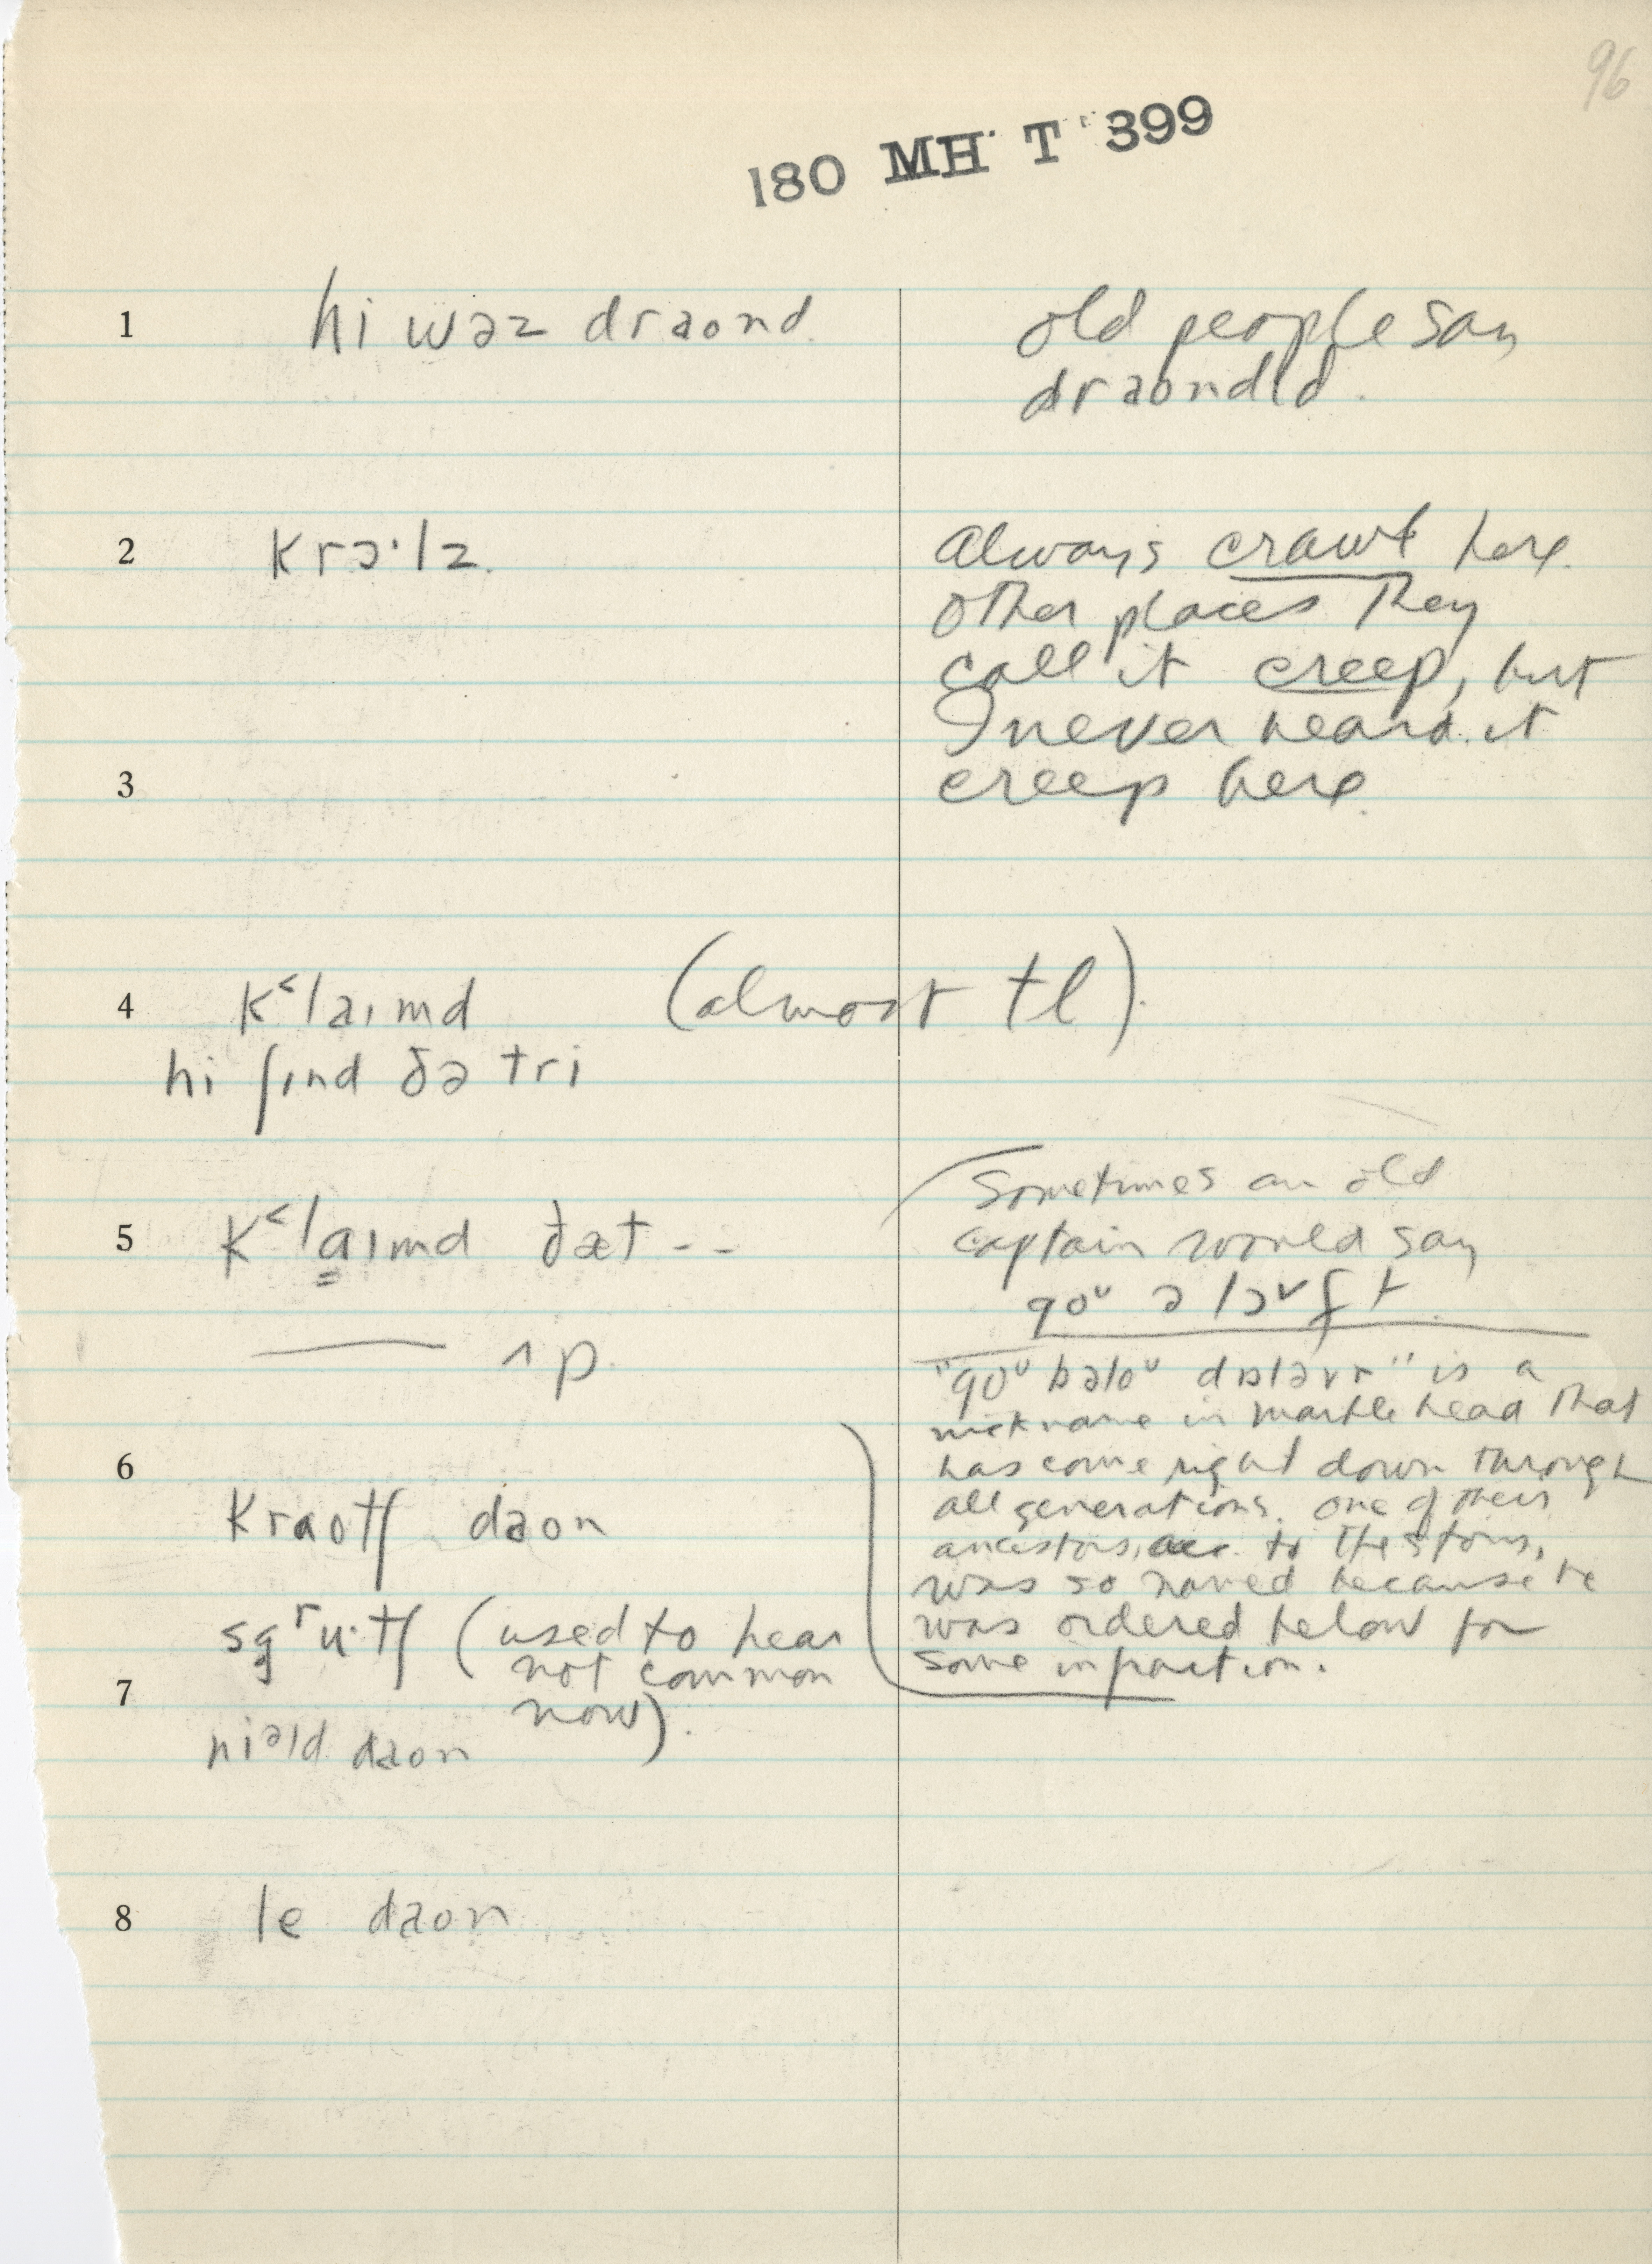 96
180 MH T 399
1 hi wəz draond
old people say
draondɪd.
2 krɔ·lz.
Always crawl here.
Other places they
call it creep, but
I never heard it
3 creep here.
4 k<laɪmd (almost tl).
hi ʃɪnd ðə tri
5 k<laɪmd ðæt --
—— ʌp.
Sometimes an old
captain would say
go^ʊ ə lɔ^vft.
"go^ʊ bəlo^ʊ" is a
nickname in Marblehead that
has come right down through
all generations. One of their
ancestors, acc. to the story,
was so named because he
was ordered below for
some infraction.
6
kraotʃ daon
sg^ru·tʃ (used to hear
not common
7 now).
ni^əld daon
8 le daon